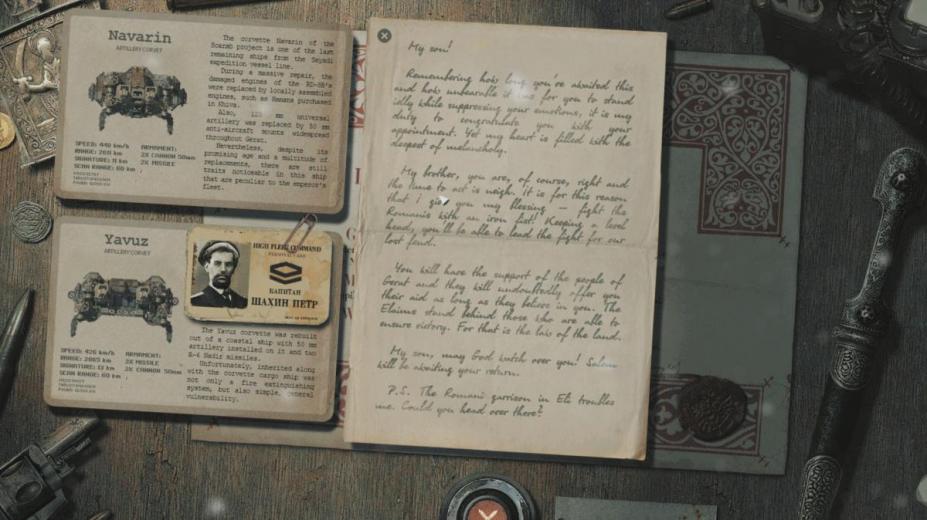 Navarin
ARTILLERY CORVET
The corvette Navarin of the
project is one of the last
remaining ships from the Sayadi
expedition vessel line.
During a massive repair, the
damaged engines of the
were replaced by locally assembled
engines, such as Romans purchased
in Khiva.
Also, mm universal
artillery was replaced by 50 mm
anti-aircraft mounts widespread
throughout Gerat.
Nevertheless, despite its
promising age and a multitude of
replacements, there are still
traits noticeable in this ship
that are peculiar to the emperor's
fleet.
SPEED: 440 km/h
RANGE: km
SIGNATURE: 11 km
SCAN RANGE: 60 km
ARMAMENT:
2X CANNON 50mm
2X MISSILE
Yavuz
ARTILLERY CORVET
HIGH FLEET COMMAND
КАПИТАН
ШАХИН ПЕТР
The Yavuz corvette was rebuilt
out of a coastal ship with 50 mm
artillery installed on it and two
Nadir missiles.
Unfortunately, inherited along
with the corvette cargo ship was
not only a fire extinguishing
system, but also simple, general
vulnerability.
SPEED: 426 km/h
RANGE: km
SIGNATURE: 13 km
SCAN RANGE: 60 km
ARMAMENT:
2X MISSILE
2X CANNON 50mm
My son!
Remembering how long you've awaited this
and how unbearable it was for you to stand
idly while suppressing your emotions, it is my
duty to congratulate you with your
appointment. Yet my heart is filled with the
deepest of melancholy.
My brother, you are, of course, right and
the time to act is neigh. it is for this reason
that I give you my blessing — fight the
Romanis with an iron fist! Keeping a level
heads, you'll be able to lead the fight for our
lost land.
You will have the support of the people of
Gerat and they will undoubtedly offer you
their aid as long as they believe in you. The
Elaims stand behind those who are able to
ensure victory. For that is the law of the land.
My son, may God watch over you! Salem
will be awaiting your return.
P.S. The Romani garrison in Eti troubles
me. Could you head over there?